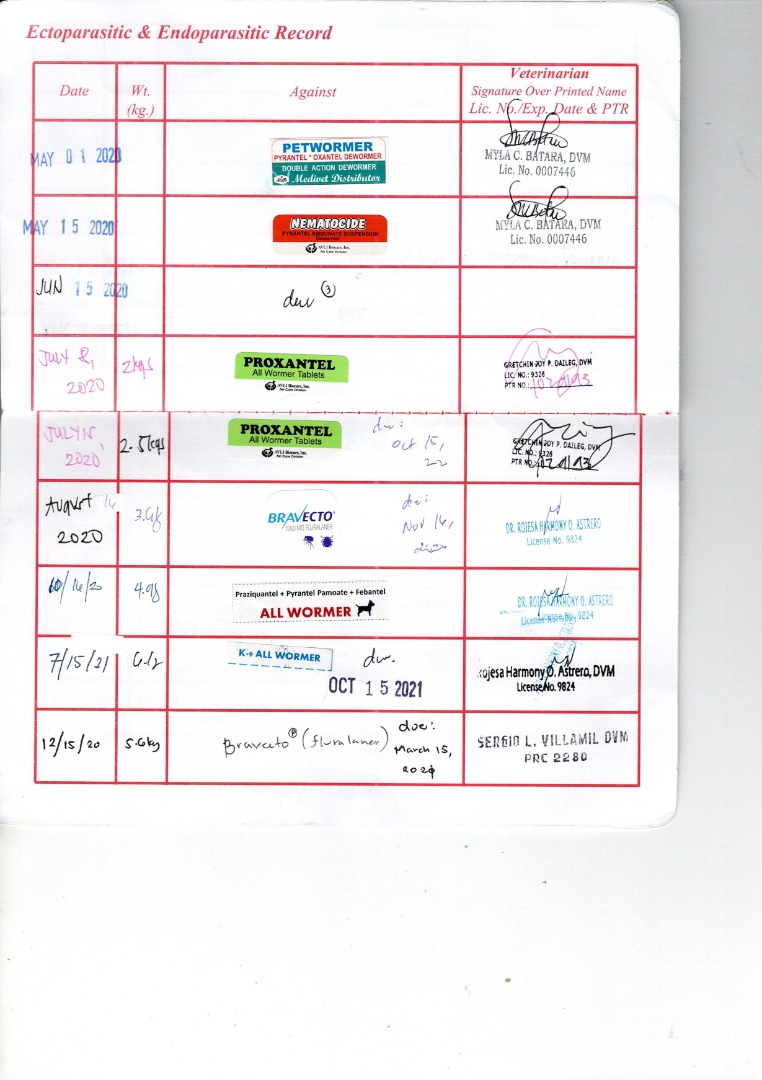 Ectoparasitic & Endoparasitic Record
Date
Wt.
(kg.)
Against
Veterinarian
Signature Over Printed Name
Lic. No./Exp. Date & PTR
MAY 01 2020
PETWORMER
PYRANTEL * OXANTEL DEWORMER
DOUBLE ACTION DEWORMER
Medivet Distributor
MYLA C. BATARA, DVM
Lic. No. 0007446
MAY 15 2020
NEMATOCIDE
PYRANTEL EMBONATE SUSPENSION
Dewormer
AVLI Biocare, Inc.
Pet Care Division
MYLA C. BATARA, DVM
Lic. No. 0007446
JUN 15 2020
dew ③
JULY 8,
2020
2kgs
PROXANTEL
All Wormer Tablets
AVLI Biocare, Inc.
Pet Care Division
GRETCHEN JOY P. DAILEG, DVM
LIC. NO.: 9326
PTR NO.:
JULY 15,
2020
2.5kgs
PROXANTEL
All Wormer Tablets
AVLI Biocare, Inc.
Pet Care Division
due:
Oct 15,
22
GRETCHEN JOY P. DAILEG, DVM
LIC. NO.: 9326
PTR NO.:
August 14
2020
BRAVECTO
FLURALANER
due:
Nov 14,
2020
DR. ROJESA HARMONY O. ASTRERO
License No. 9824
10/14/20
Praziquantel + Pyrantel Pamoate + Febantel
ALL WORMER
DR. ROJESA HARMONY O. ASTRERO
License No. 9824
7/15/21
K-9 ALL WORMER
due.
OCT 15 2021
Rojesa Harmony O. Astrero, DVM
License No. 9824
12/15/20
5.6kg
Bravecto® (fluralaner)
due:
March 15,
SERGIO L. VILLAMIL DVM
PRC 2280